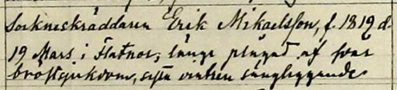 Sockneskräddaren Erik Mikaelsson, f. 1819 d.
19 Mars i Flatnor, länge plågad af svår
bröstsjukdom, sista vintren sängliggande